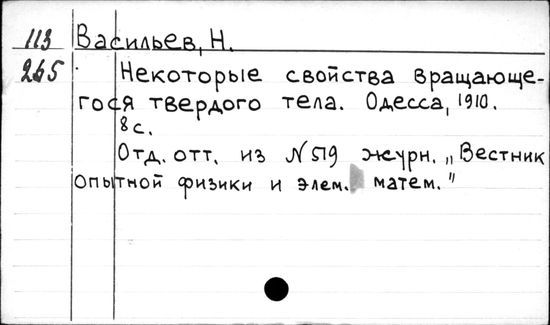 113 Васильев, Н.
265 Некоторые свойства вращающе-
гося твердого тела. Одесса, 1910.
8 с.
Отд. отт. из № 519 журн. „Вестник
опытной физики и элем. матем."